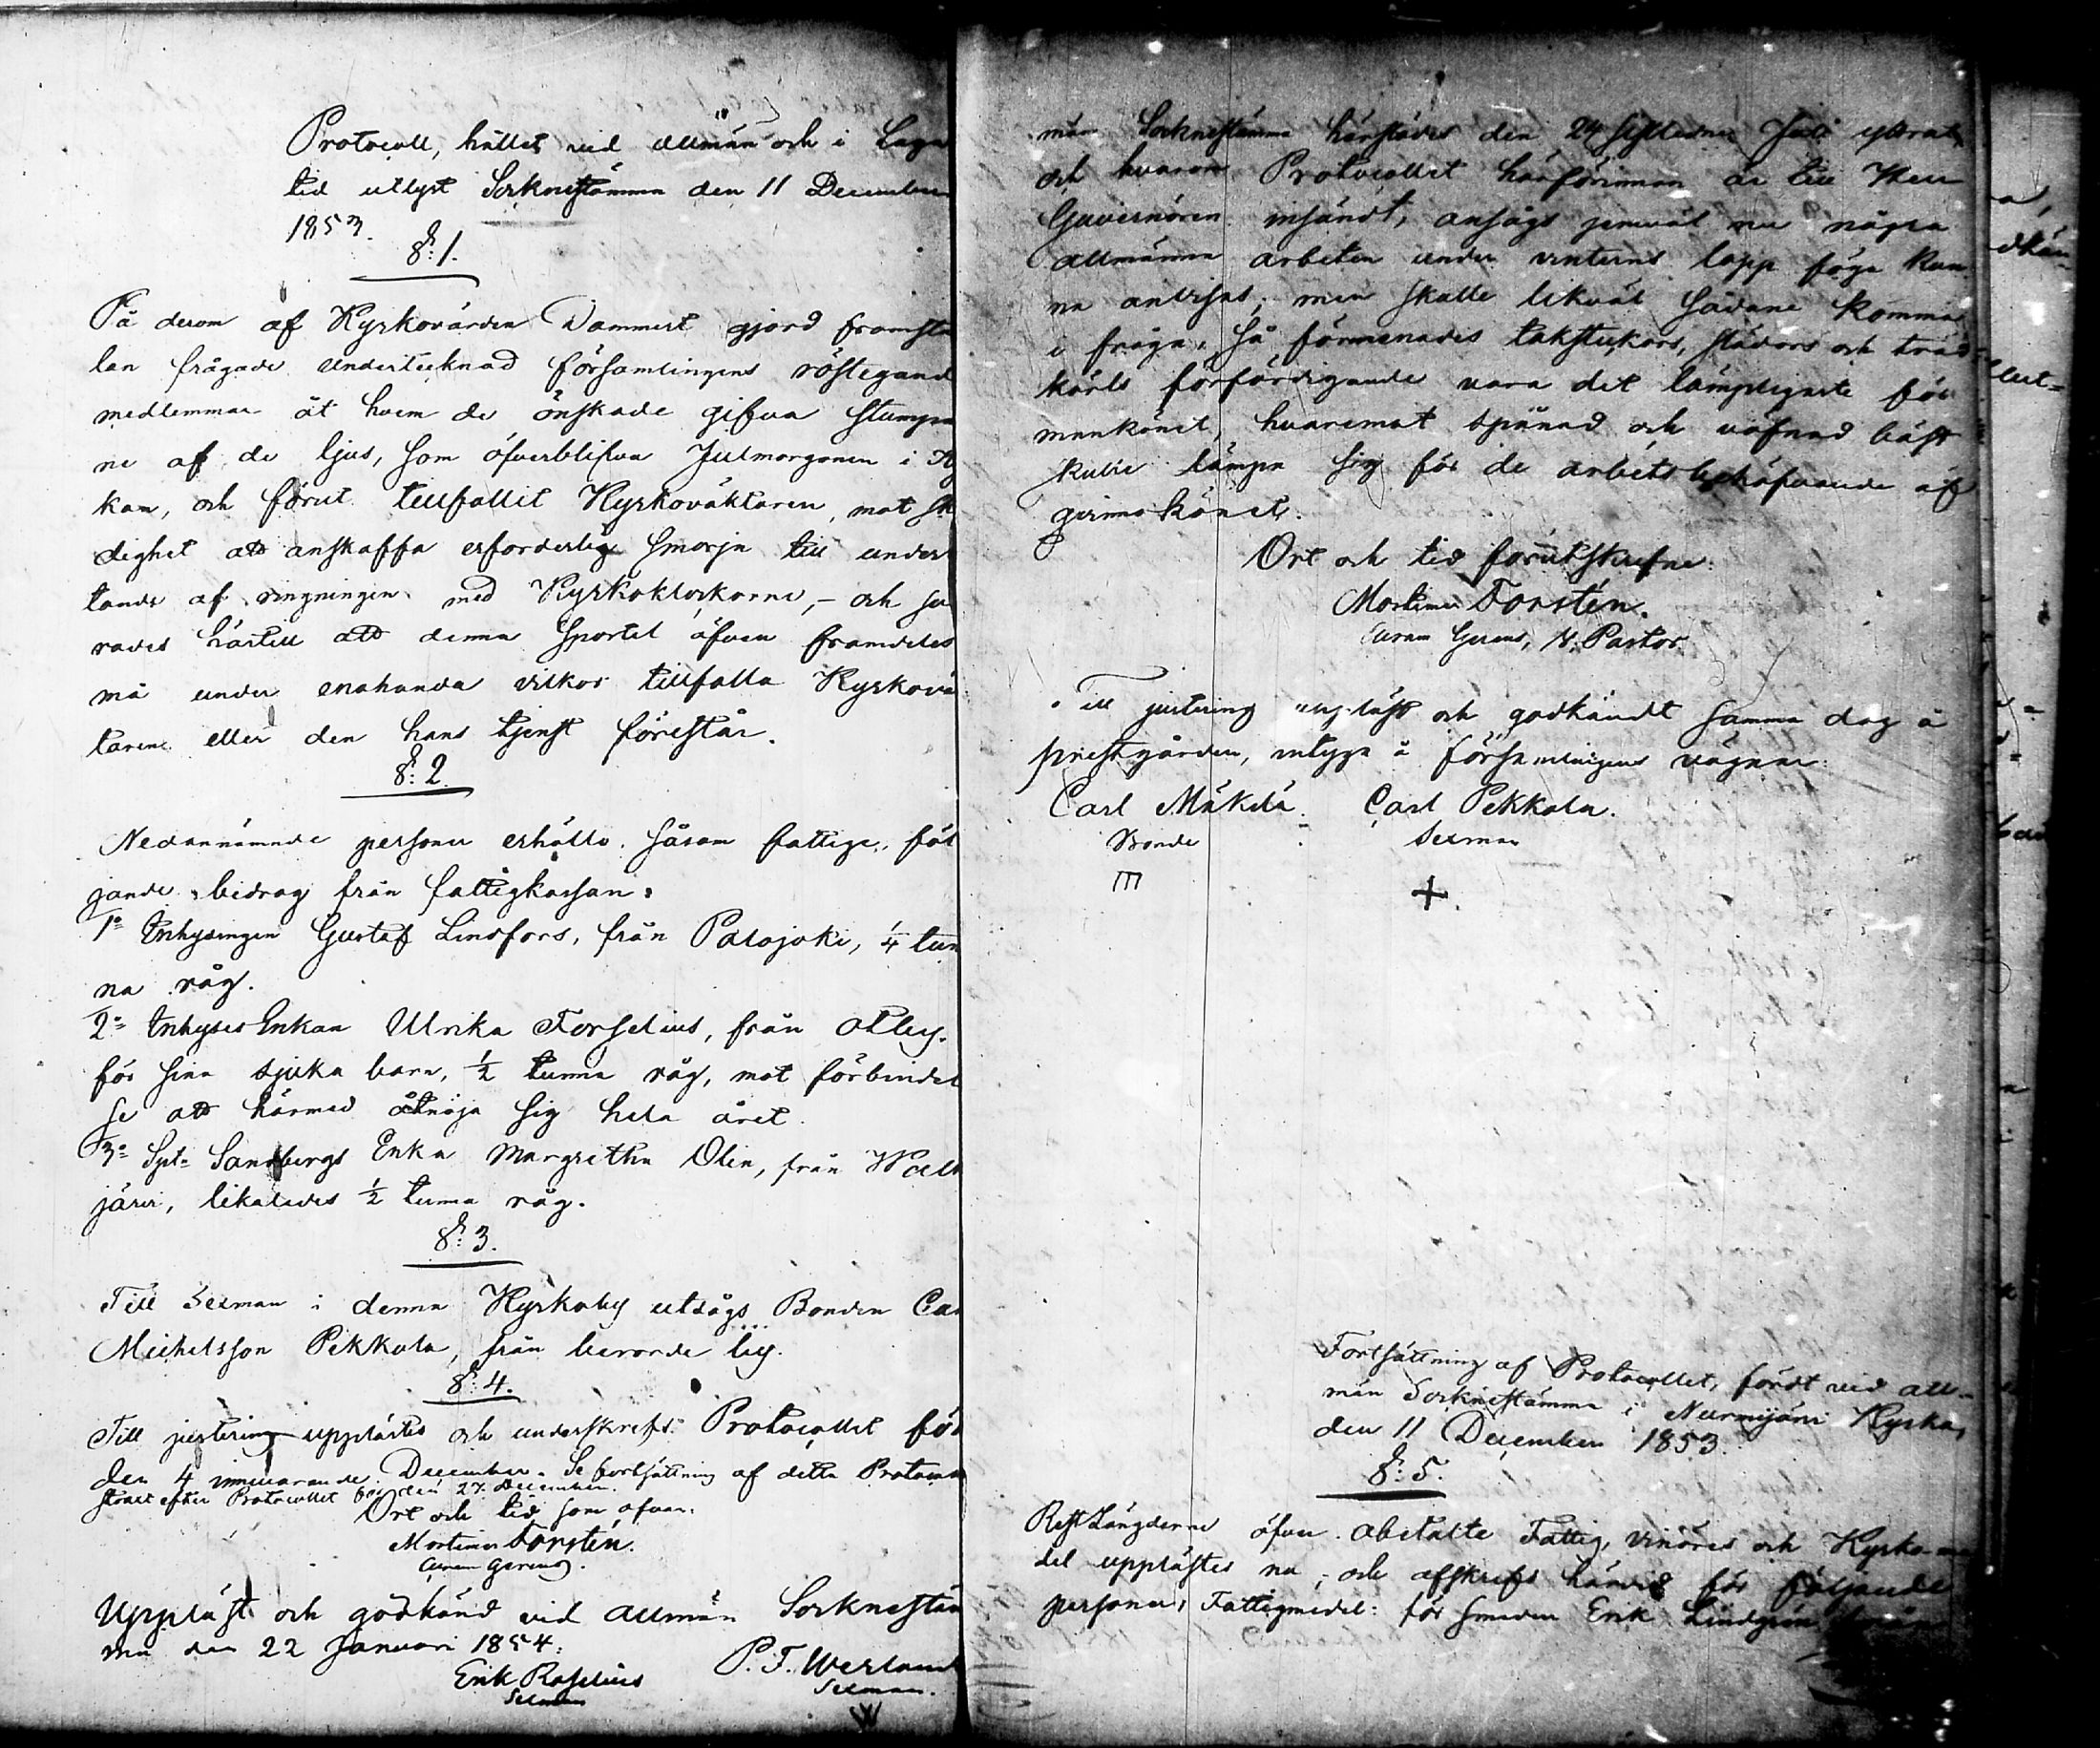 Protocoll, hållet vid allmän och i Laga
tid utlyst Socknestämma den 11 December
1853.
§: 1.
På derom af Kyrkovärden Dammert gjord framstä
lan frågade undertecknad församlingens röstegand
medlemmar åt hvem de önskade gifva stumpa
ne af de ljus, som öfverblifva Julmorgonen i Ky
kan, och förut tillfallit Kyrkoväktaren, mot sk
dighet att anskaffa erforderlig smörja till under
tande af ringningen med Kyrkoklockorne, – och sva
rades härtill att denna sportel äfven framdeles
må under enahanda vilkor tillfalla Kyrkovä
taren eller den hans tjenst förestår.
§: 2.
Nedannämnde personer erhöllo såsom fattige, föl
jande bidrag från fattigkassan:
1º Inhysingen Gustaf Lindfors, från Palojoki, 1/4 tun
na råg.
2º Inhyses Enkan Ulrika Forselius, från
för sina sjuka barn, 1/2 tunna råg, mot förbindel
se att härmed åtnöja sig hela året.
3º Sandbergs Enka Margretha Olin, från
järvi, likaledes 1/2 tunna råg.
§: 3.
Till Sexman i denna Kyrkoby utsågs Bonden Car
Michelsson Pekkola, från berörde by.
§: 4.
Till justering upplästes och underskrefs Protocollet för
den 4 innevarande December. Se fortsättning af detta Protocoll
straxt efter Protocollet för den 27 December.
Ort och tid som ofvan.
Mortimer Forstén.
Upplåst och godkänd vid allmän Socknestäm
ma den 22 Januari 1854.
Erik Roselius P. F. Werland
Sexman Sexman.
män Socknestämma härstädes den 24 sistledne Juli yttrat
och hvarom Protocollet härförinnan är till Herr
Guvernören insändt, ansågs jemväl nu några
allmänna arbeten under vinterns lopp föga kun
na anvisas; men skulle likväl sådane komma
i fråga, så förmenades takstickors, slädors och träd
kärls förfärdigande vara det lämpligaste för
mankönet, hvaremot spånad och väfnad bäst
skulle lämpa sig för de arbetsbehöfvande af
qvinnokönet.
Ort och tid förutskrefne:
Mortimer Forstén.
Pastor.
Till justering uppläst och godkändt samma dag å
prestgården, intyga å församlingens vägnar:
Carl Mäkelä Carl Pekkola.
Bonde Sexman
m +
Fortsättning af Protocollet, fördt vid all-
män Socknestämma i Nurmijärvi Kyrka,
den 11 December 1853.
§: 5.
Rest Längderne öfver obetalte Fattig, Vinöres och Kyrko-me
del upplästes nu, och afskrefs härvid för följande
personer, Fattigmedel: för smeden Erik Lindgrén